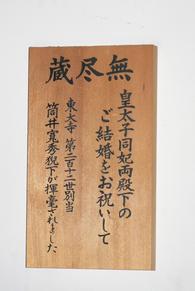 無尽蔵
皇太子同妃両殿下の
ご結婚をお祝いして
東大寺 第二百十二世別当
筒井寛秀猊下が揮毫されました